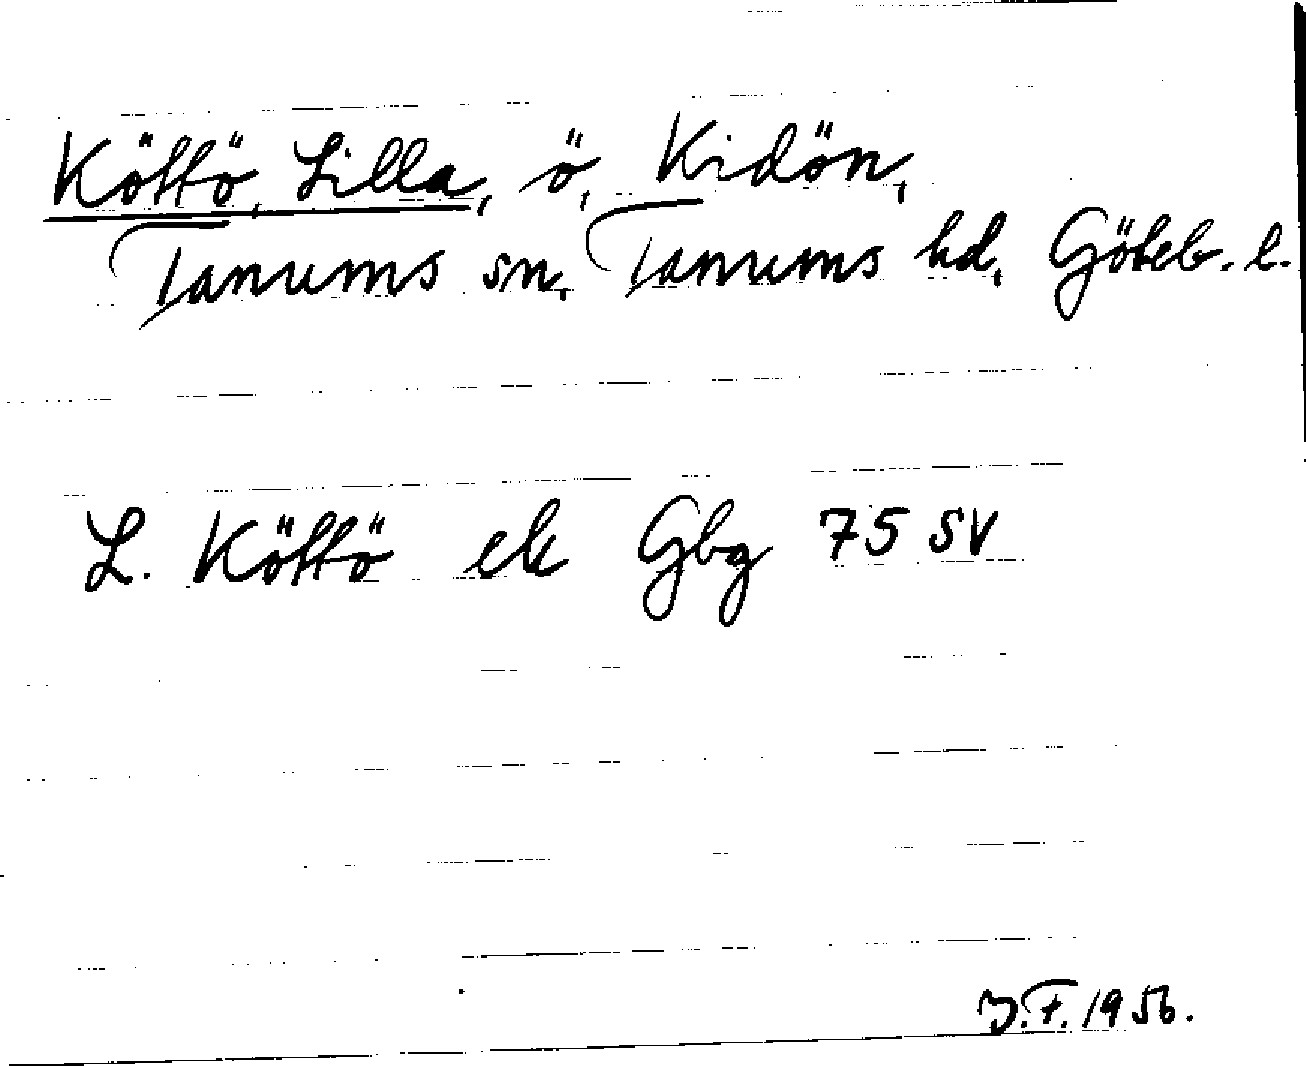 Köttö, Lilla, ö, Kidön,
Tanums sn, Tanums hd, Göteb. l.
L. Köttö ek Gbg 75 SV
J.F. 1956.